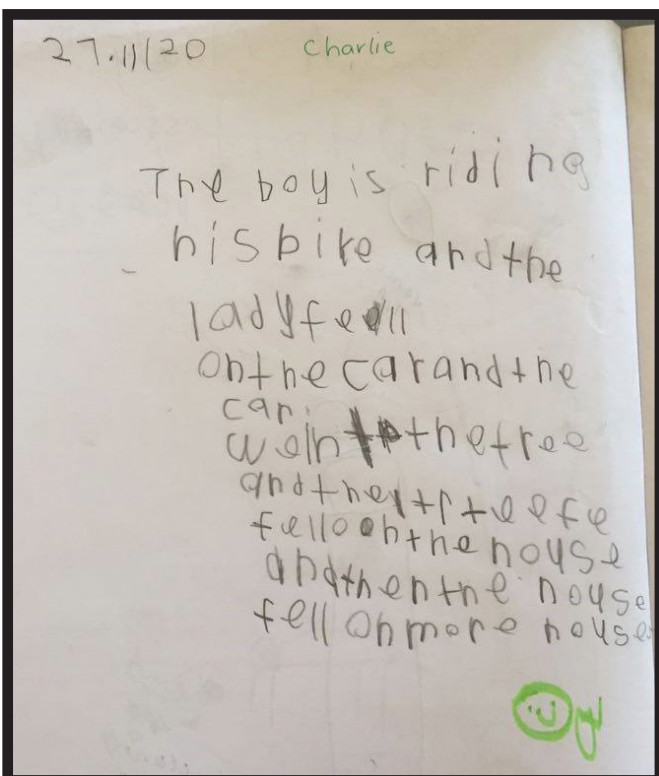 27.11/20 Charlie
The boy is riding
his bike and the
lady fell
on the car and the
car
went the tree
and the
fell on the house
and then the house
fell on more house